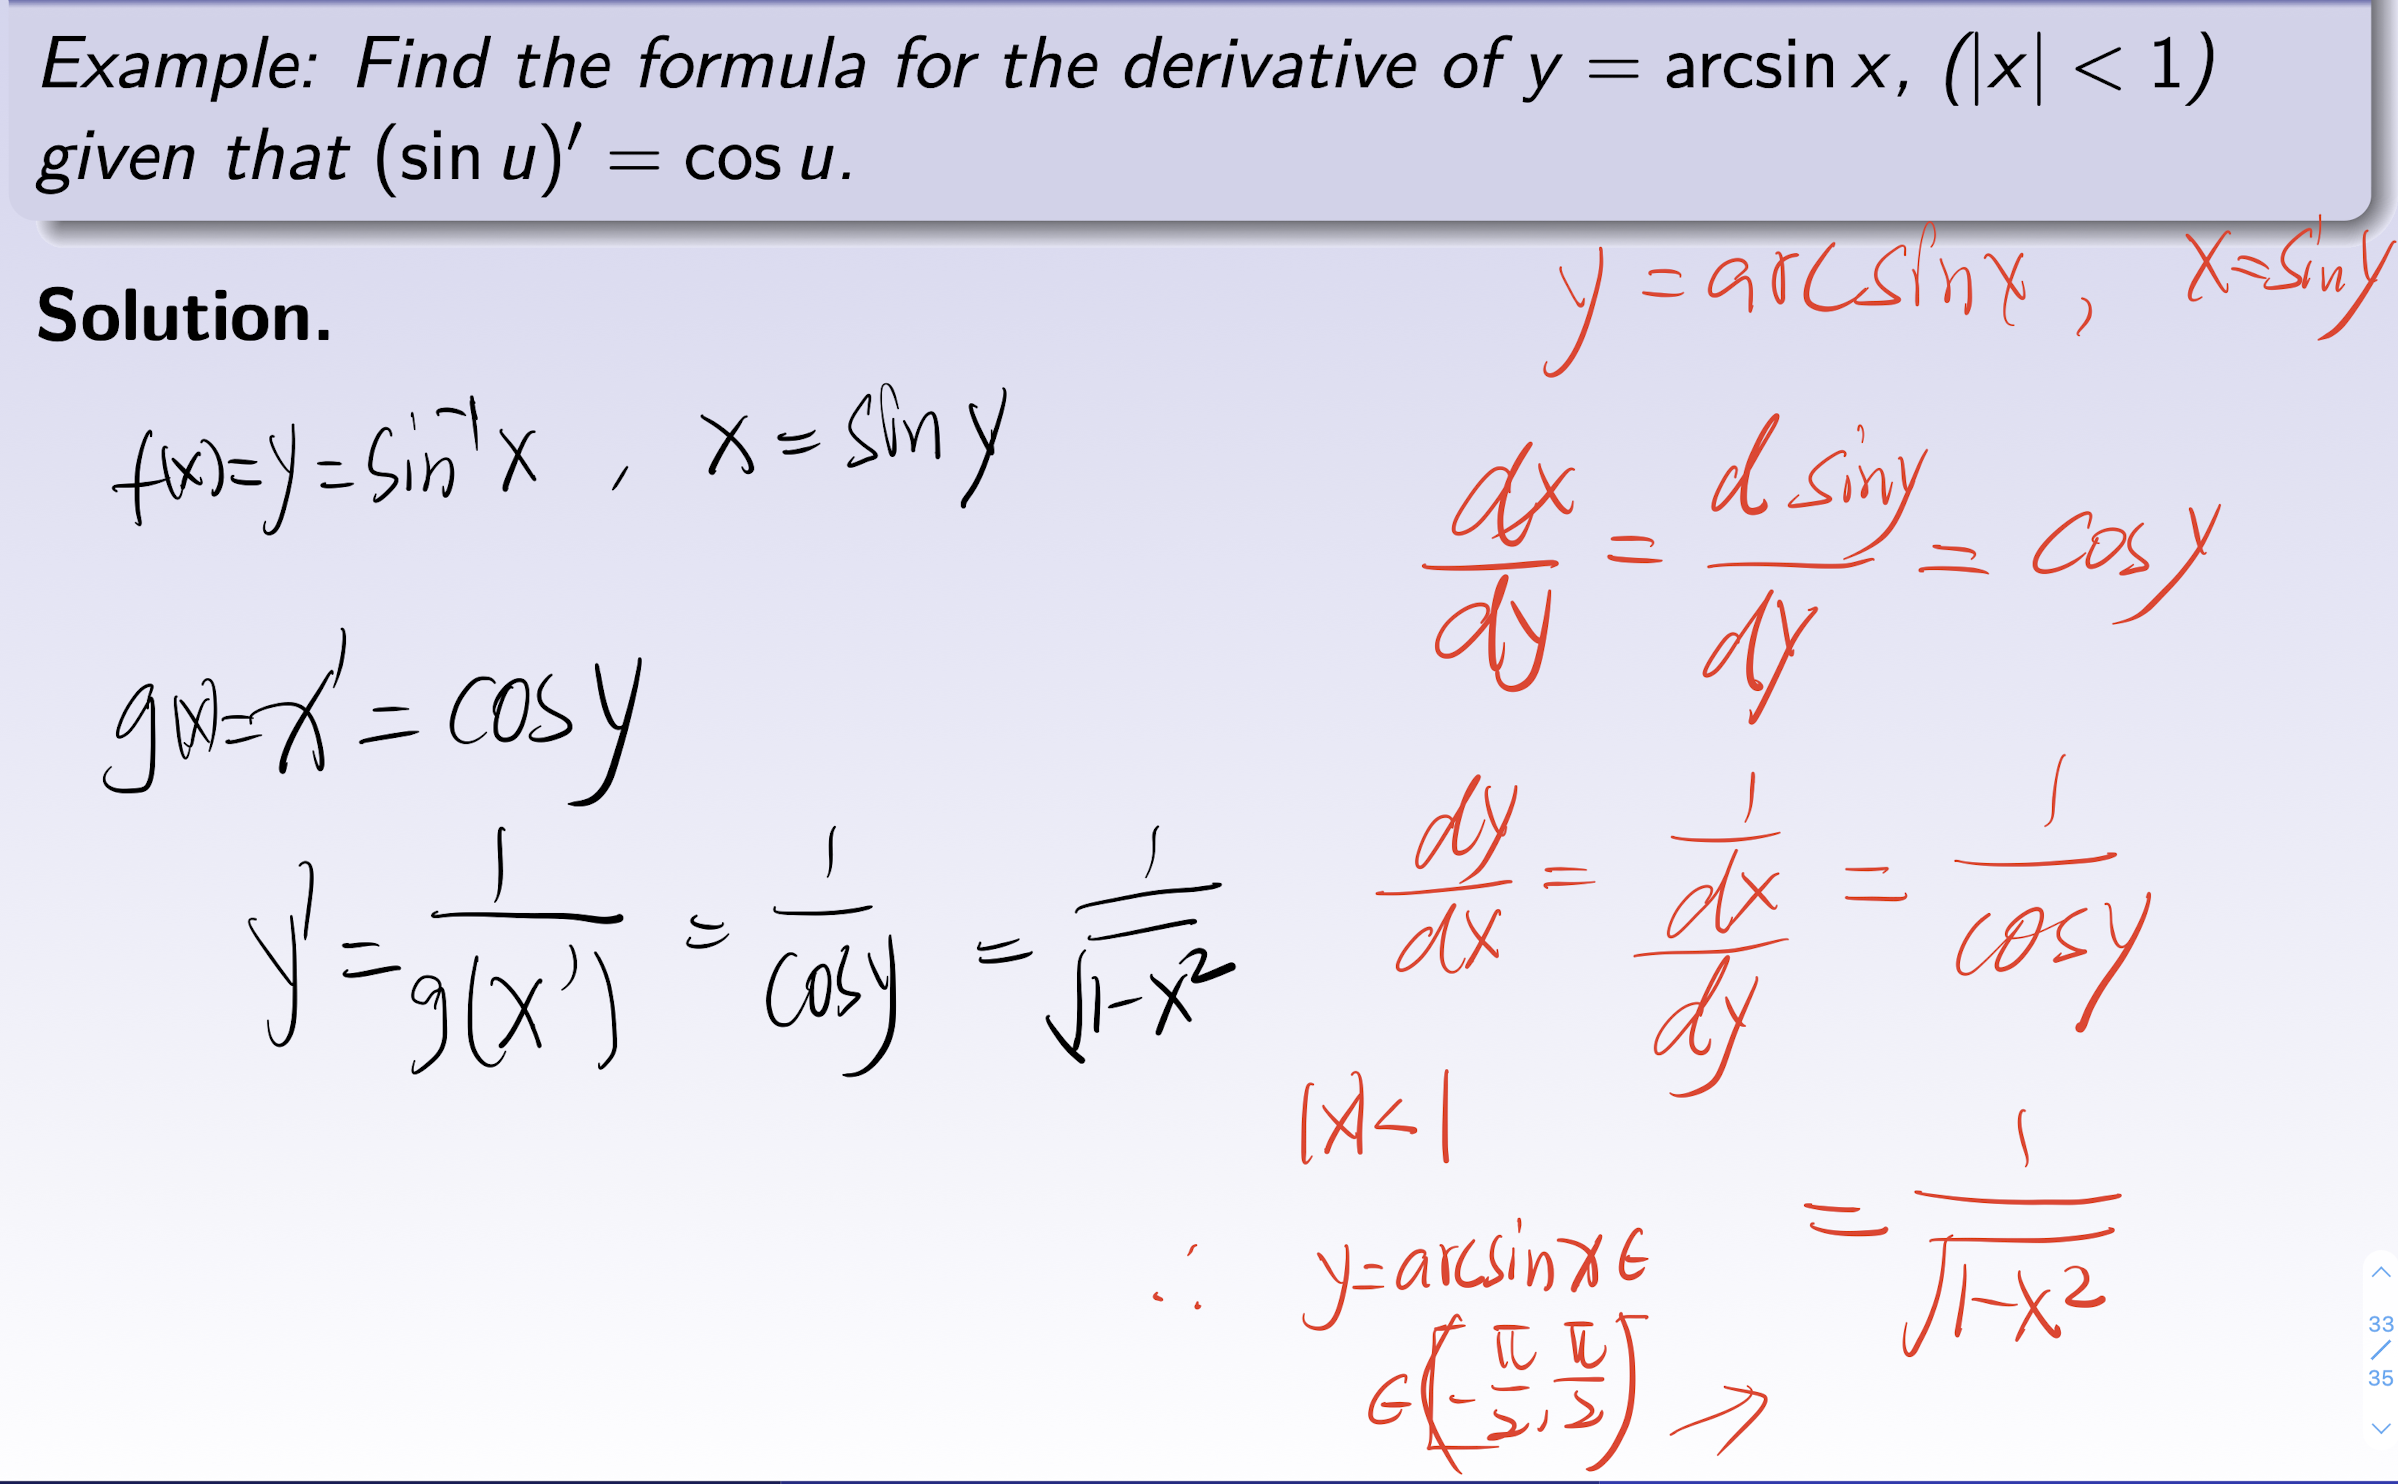 Example: Find the formula for the derivative of y = arcsin x, (|x| < 1)
given that (sin u)′ = cos u.
Solution.
f(x)=y=sin⁻¹x , x = sin y
g(x)=x′ = cos y
y′ = 1/g(x′) = 1/cos y = 1/√(1-x²)
y = arcsin x , x = sin y
dx/dy = d sin y/dy = cos y
dy/dx = 1/(dx/dy) = 1/cos y
|x| < 1
= 1/√(1-x²)
∴ y = arcsin x ∈
∈ (-π/2, π/2) ⇒
33
/
35